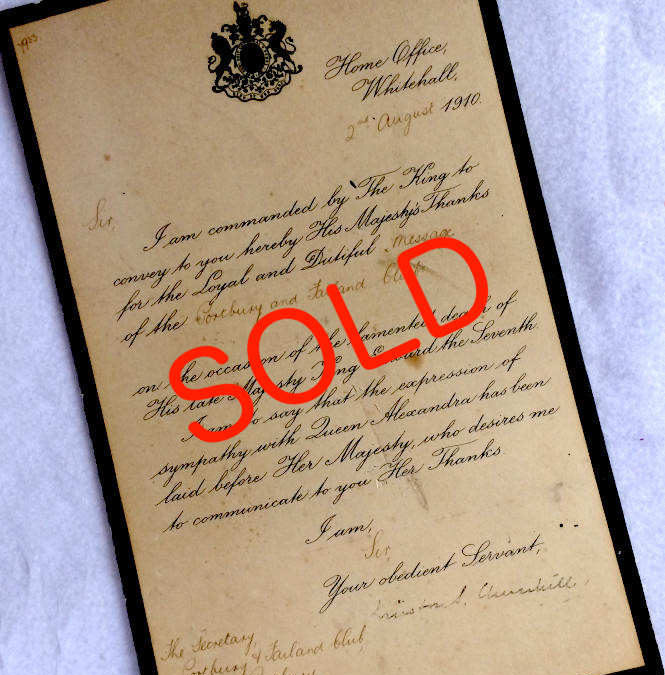 1933
Home Office,
Whitehall,
2nd August 1910.
Sir,
I am commanded by The King to
convey to you hereby His Majesty's Thanks
for the Loyal and Dutiful Message
of the Portbury and Failand Club
on the occasion of the lamented death of
His late Majesty King Edward the Seventh.
I am to say that the expression of
sympathy with Queen Alexandra has been
laid before Her Majesty, who desires me
to communicate to you Her Thanks.
I am,
Sir,
Your obedient Servant,
Winston S. Churchill
The Secretary,
Portbury & Failand Club,
SOLD